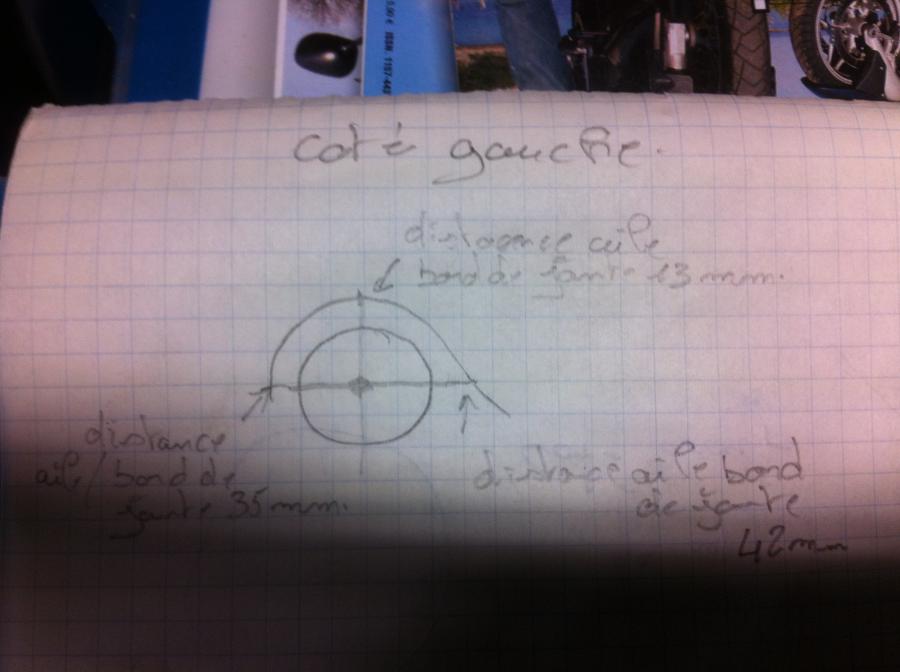 5,00 € ISSN : 1157-44
coté gauche.
distagence aile
bord de jante 13 mm.
distance
aile / bord de
jante 35 mm.
distance aile bord
de jante
42 mm